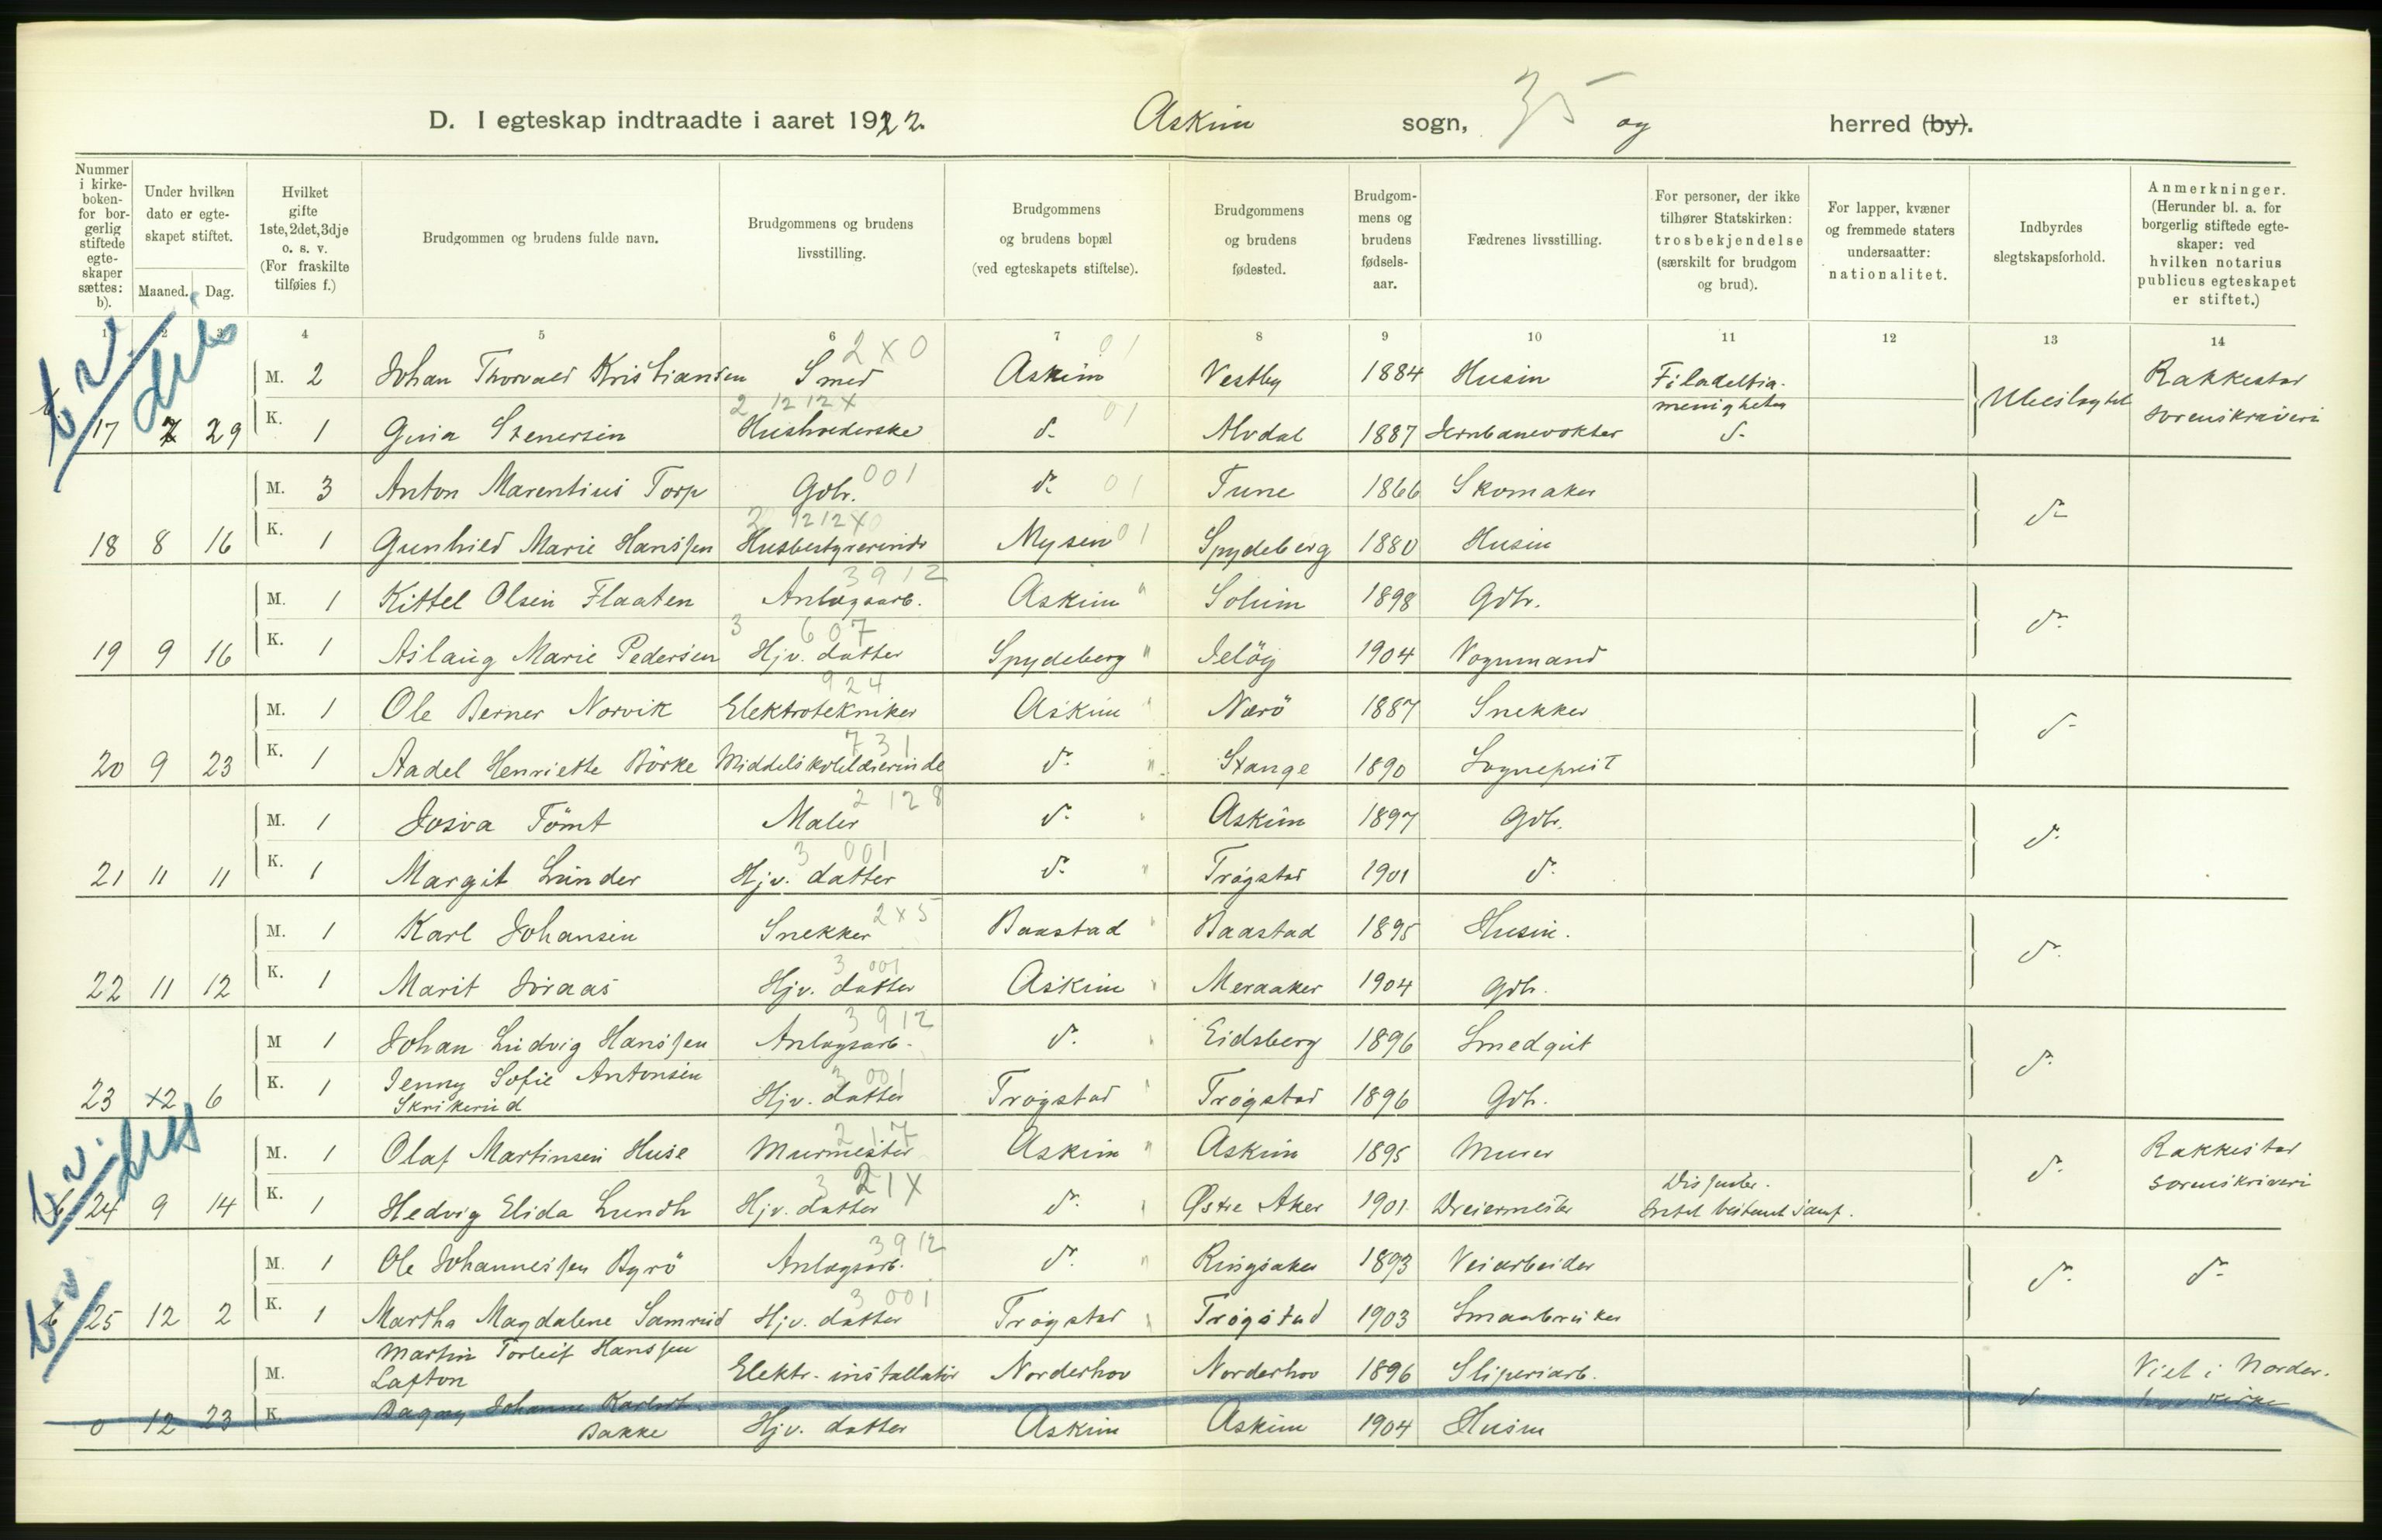 D. I egteskap indtraadte i aaret 1922. Askim sogn, 35 og herred (by).
Nummer i kirkeboken for borgerlig stiftede egteskaper sættes: b).
Under hvilken dato er egteskapet stiftet.
Maaned. Dag.
Hvilket gifte 1ste, 2det, 3dje o. s. v. (For fraskilte tilføies f.)
Brudgommen og brudens fulde navn.
Brudgommens og brudens livsstilling.
Brudgommens og brudens bopæl (ved egteskapets stiftelse).
Brudgommens og brudens fødested.
Brudgommens og brudens fødselsaar.
Fædrenes livsstilling.
For personer, der ikke tilhører Statskirken: trosbekjendelse (særskilt for brudgom og brud).
For lapper, kvæner og fremmede staters undersaatter: nationalitet.
Indbyrdes slegtskapsforhold.
Anmerkninger. (Herunder bl. a. for borgerlig stiftede egteskaper: ved hvilken notarius publicus egteskapet er stiftet.)
1 2 3 4 5 6 7 8 9 10 11 12 13 14
2 x 0 01
M. 2 Johan Thorvald Kristiansen Smed Askim Vestby 1884 Husm Filadelfia- Rakkestad
2 1212x 01 menigheten Ubeslegtet
17 7 29 K. 1 Gina Stenersen Husholderske d- Alvdal 1887 Jernbanevokter d- sorenskriveri
M. 3 Anton Marentius Torp Gbr. 001 d- 01 Tune 1866 Skomaker
2 1212x0 d-
18 8 16 K. 1 Gunhild Marie Hanssen Husbestyrerinde Mysen 01 Spydeberg 1880 Husm
3912
M. 1 Kittel Olsen Flaaten Anlegsarb. Askim " Solum 1898 Gbr.
3 607 d-
19 9 16 K. 1 Aslaug Marie Pedersen Hjv. datter Spydeberg " Jeløy 1904 Vognmand
924
M. 1 Ole Berner Norvik Elektrotekniker Askim " Nærö 1887 Snekker
731 d-
20 9 23 K. 1 Aadel Henriette Börke Middelskolelærerinde d- " Stange 1890 Sogneprest
2 128
M. 1 Josva Tömt Maler d- " Askim 1897 Gbr.
3 001 d-
21 11 11 K. 1 Margit Lunder Hjv. datter d- " Trøgstad 1901 d-
2x5
M. 1 Karl Johansen Snekker Baastad " Baastad 1895 Husm.
3 001 d-
22 11 12 K. 1 Marit Joraas Hjv. datter Askim " Meraaker 1904 Gbr.
3912
M 1 Johan Ludvig Hanssen Anlegsarb. d- " Eidsberg 1896 Smedgut
3 001 d-
23 12 6 K. 1 Jenny Sofie Antonsen Skrikerud Hjv. datter Trøgstad " Trøgstad 1896 Gbr.
217
M. 1 Olaf Martinsen Huse Murmester Askim " Askim 1895 Murer Rakkestad
3 21x Dissenter. d-
b 24 9 14 K. 1 Hedvig Elida Lundh Hjv. datter d- " Østre Aker 1901 Dreiermester sorenskriveri
3912
M. 1 Ole Johannessen Byrö Anlegsarb. d- " Ringsaker 1893 Veiarbeider
3 001 d- d-
b 25 12 2 K. 1 Martha Magdalene Samrud Hjv. datter Trøgstad " Trøgstad 1903 Smaabruker
M. Martin Torleif Hanssen Lafton Elektr. installatör Norderhov Norderhov 1896 Sliperiarb. Viet i Norder-
d- hov kirke
0 12 23 K. Dagny Johanne Bakke Hjv. datter Askim Askim 1904 Husm